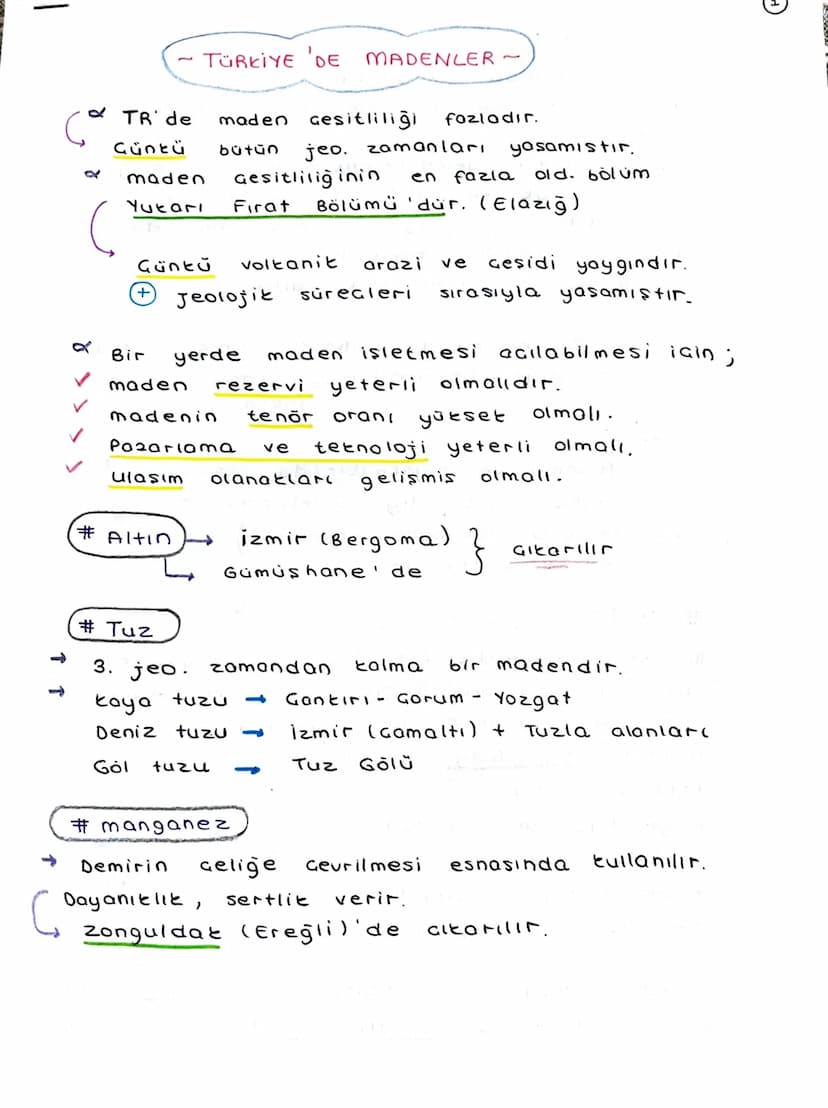 1
~ TÜRKİYE 'DE MADENLER ~
∝ TR'de maden çeşitliliği fazladır.
Çünkü bütün jeo. zamanları yaşamıştır.
∝ maden çeşitliliğinin en fazla old. bölüm
Yukarı Fırat Bölümü'dür. (Elazığ)
Çünkü volkanik arazi ve çeşidi yaygındır.
+ Jeolojik süreçleri sırasıyla yaşamıştır.
∝ Bir yerde maden işletmesi açılabilmesi için ;
✓ maden rezervi yeterli olmalıdır.
✓ madenin tenör oranı yüksek olmalı.
✓ Pazarlama ve teknoloji yeterli olmalı.
✓ ulaşım olanakları gelişmiş olmalı.
# Altın → İzmir (Bergama) } Çıkarılır
↳ Gümüşhane'de
# Tuz
→ 3. jeo. zamandan kalma bir madendir.
→ kaya tuzu → Çankırı - Çorum - Yozgat
Deniz tuzu → İzmir (Çamaltı) + Tuzla alanları
Göl tuzu → Tuz Gölü
# manganez
→ Demirin çeliğe çevrilmesi esnasında kullanılır.
Dayanıklık, sertlik verir.
↳ Zonguldak (Ereğli)'de çıkarılır.